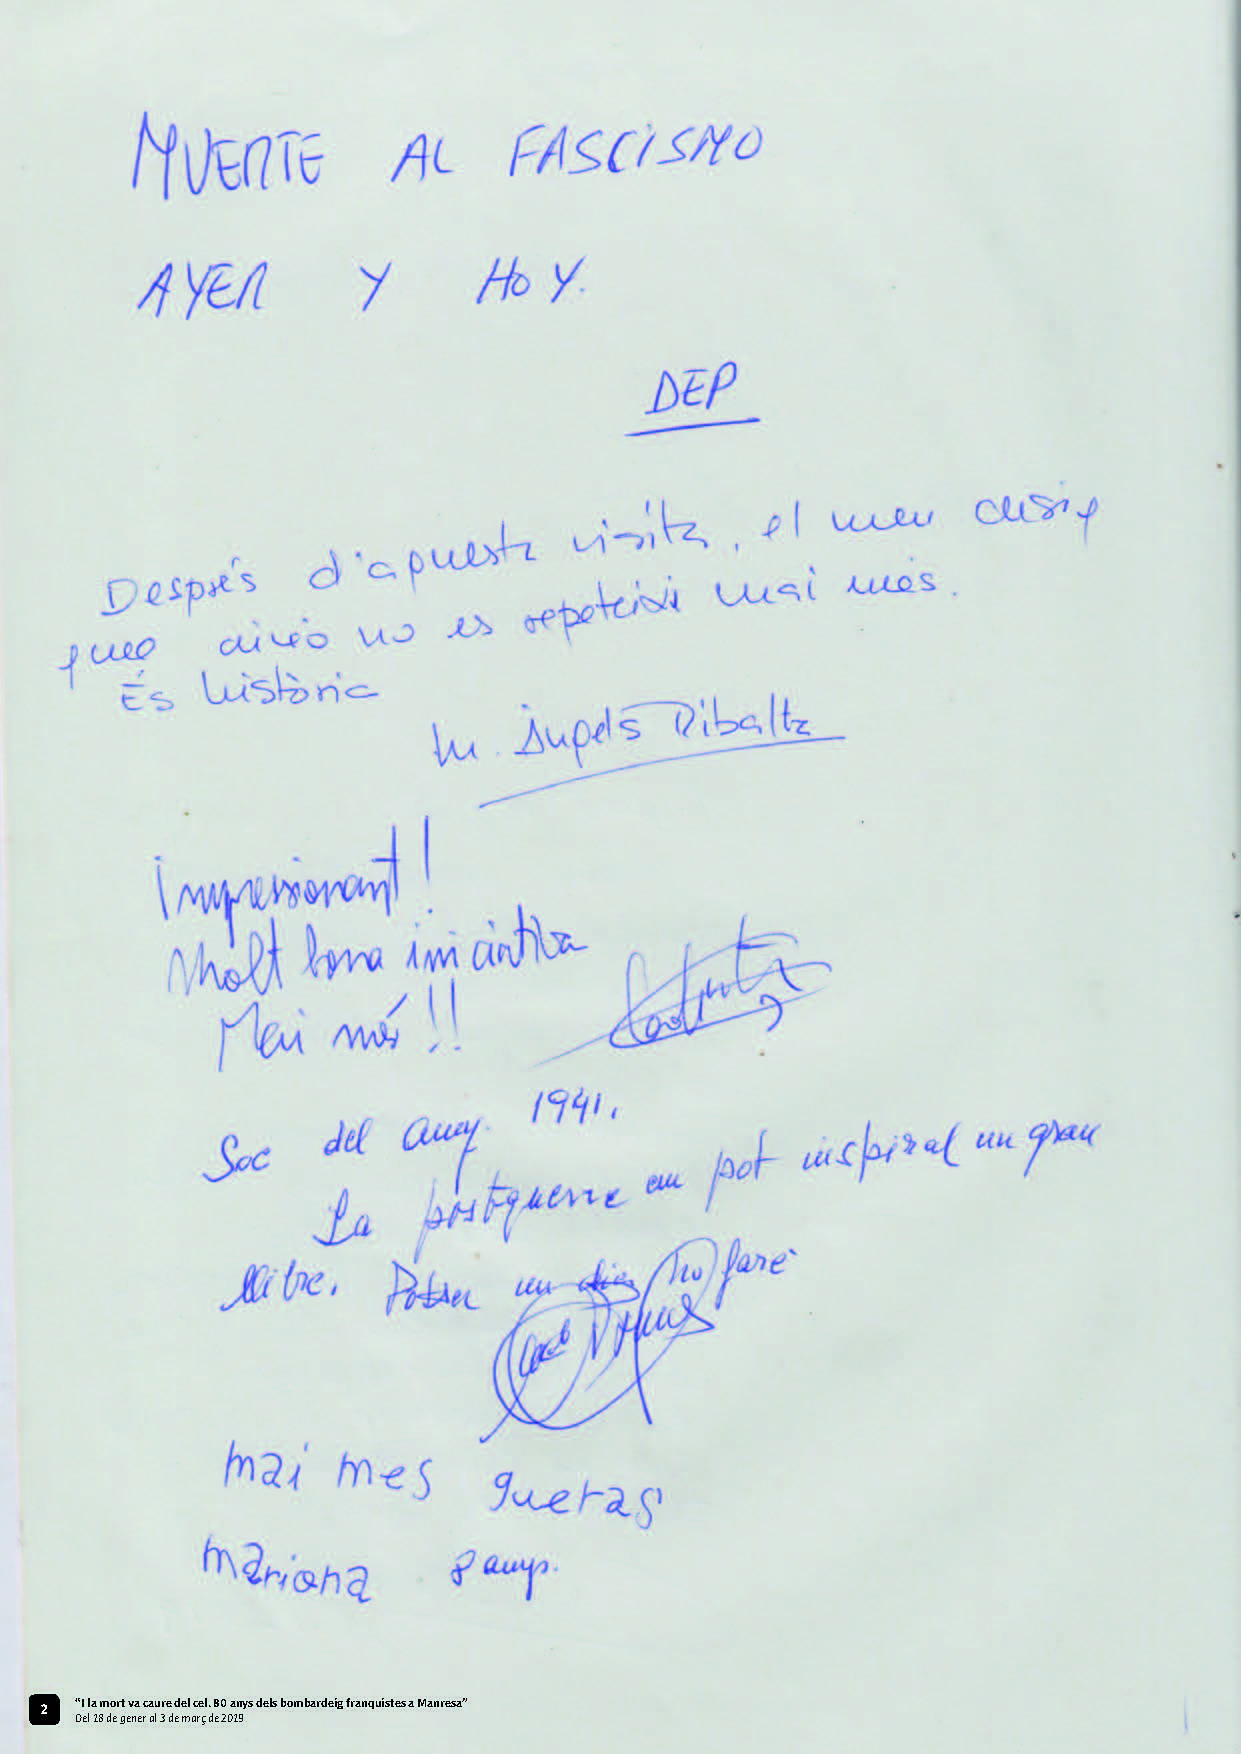 MUERTE AL FASCISMO
AYER Y HOY.
DEP
Després d'aquesta visita, el meu desig
que això no es repeteixi mai més.
És història
M. Àngels Ribalta
Impressionant!
Molt bona iniciativa
Mai més!!
Soc del any. 1941.
La postguerra em pot inspirar un gran
llibre. Potser un dia ho faré
mai mes gueras
mariona 8 anys.
2
"I la mort va caure del cel. 80 anys dels bombardeig franquistes a Manresa"
Del 18 de gener al 3 de març de 2019